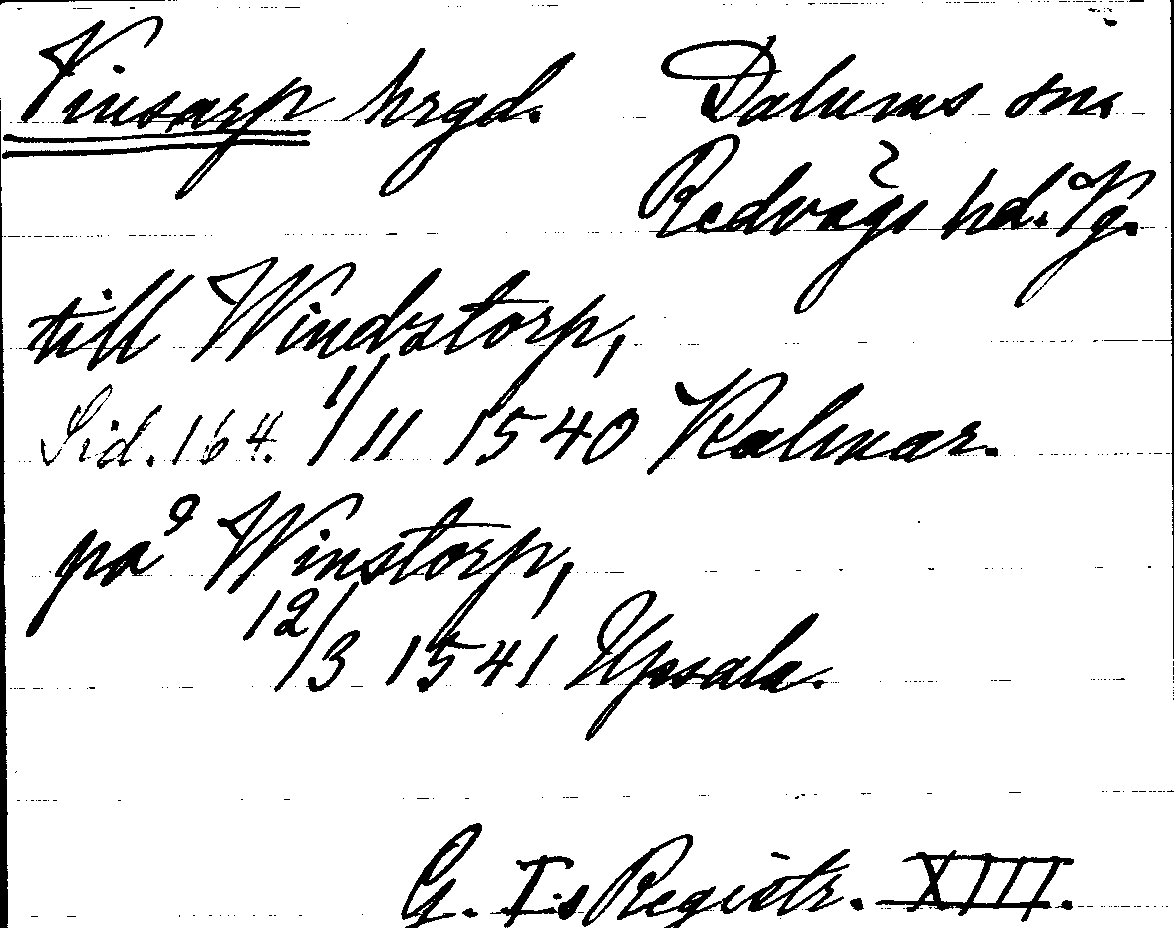 Vinsarp hrgd. Dalums sn.
Redvägs hd. Vg.
till Windzstorp,
Sid. 164. 1/11 1540 Kalmar.
på Winstorp,
12/3 1541 Upsala.
G. I:s Registr. XIII.